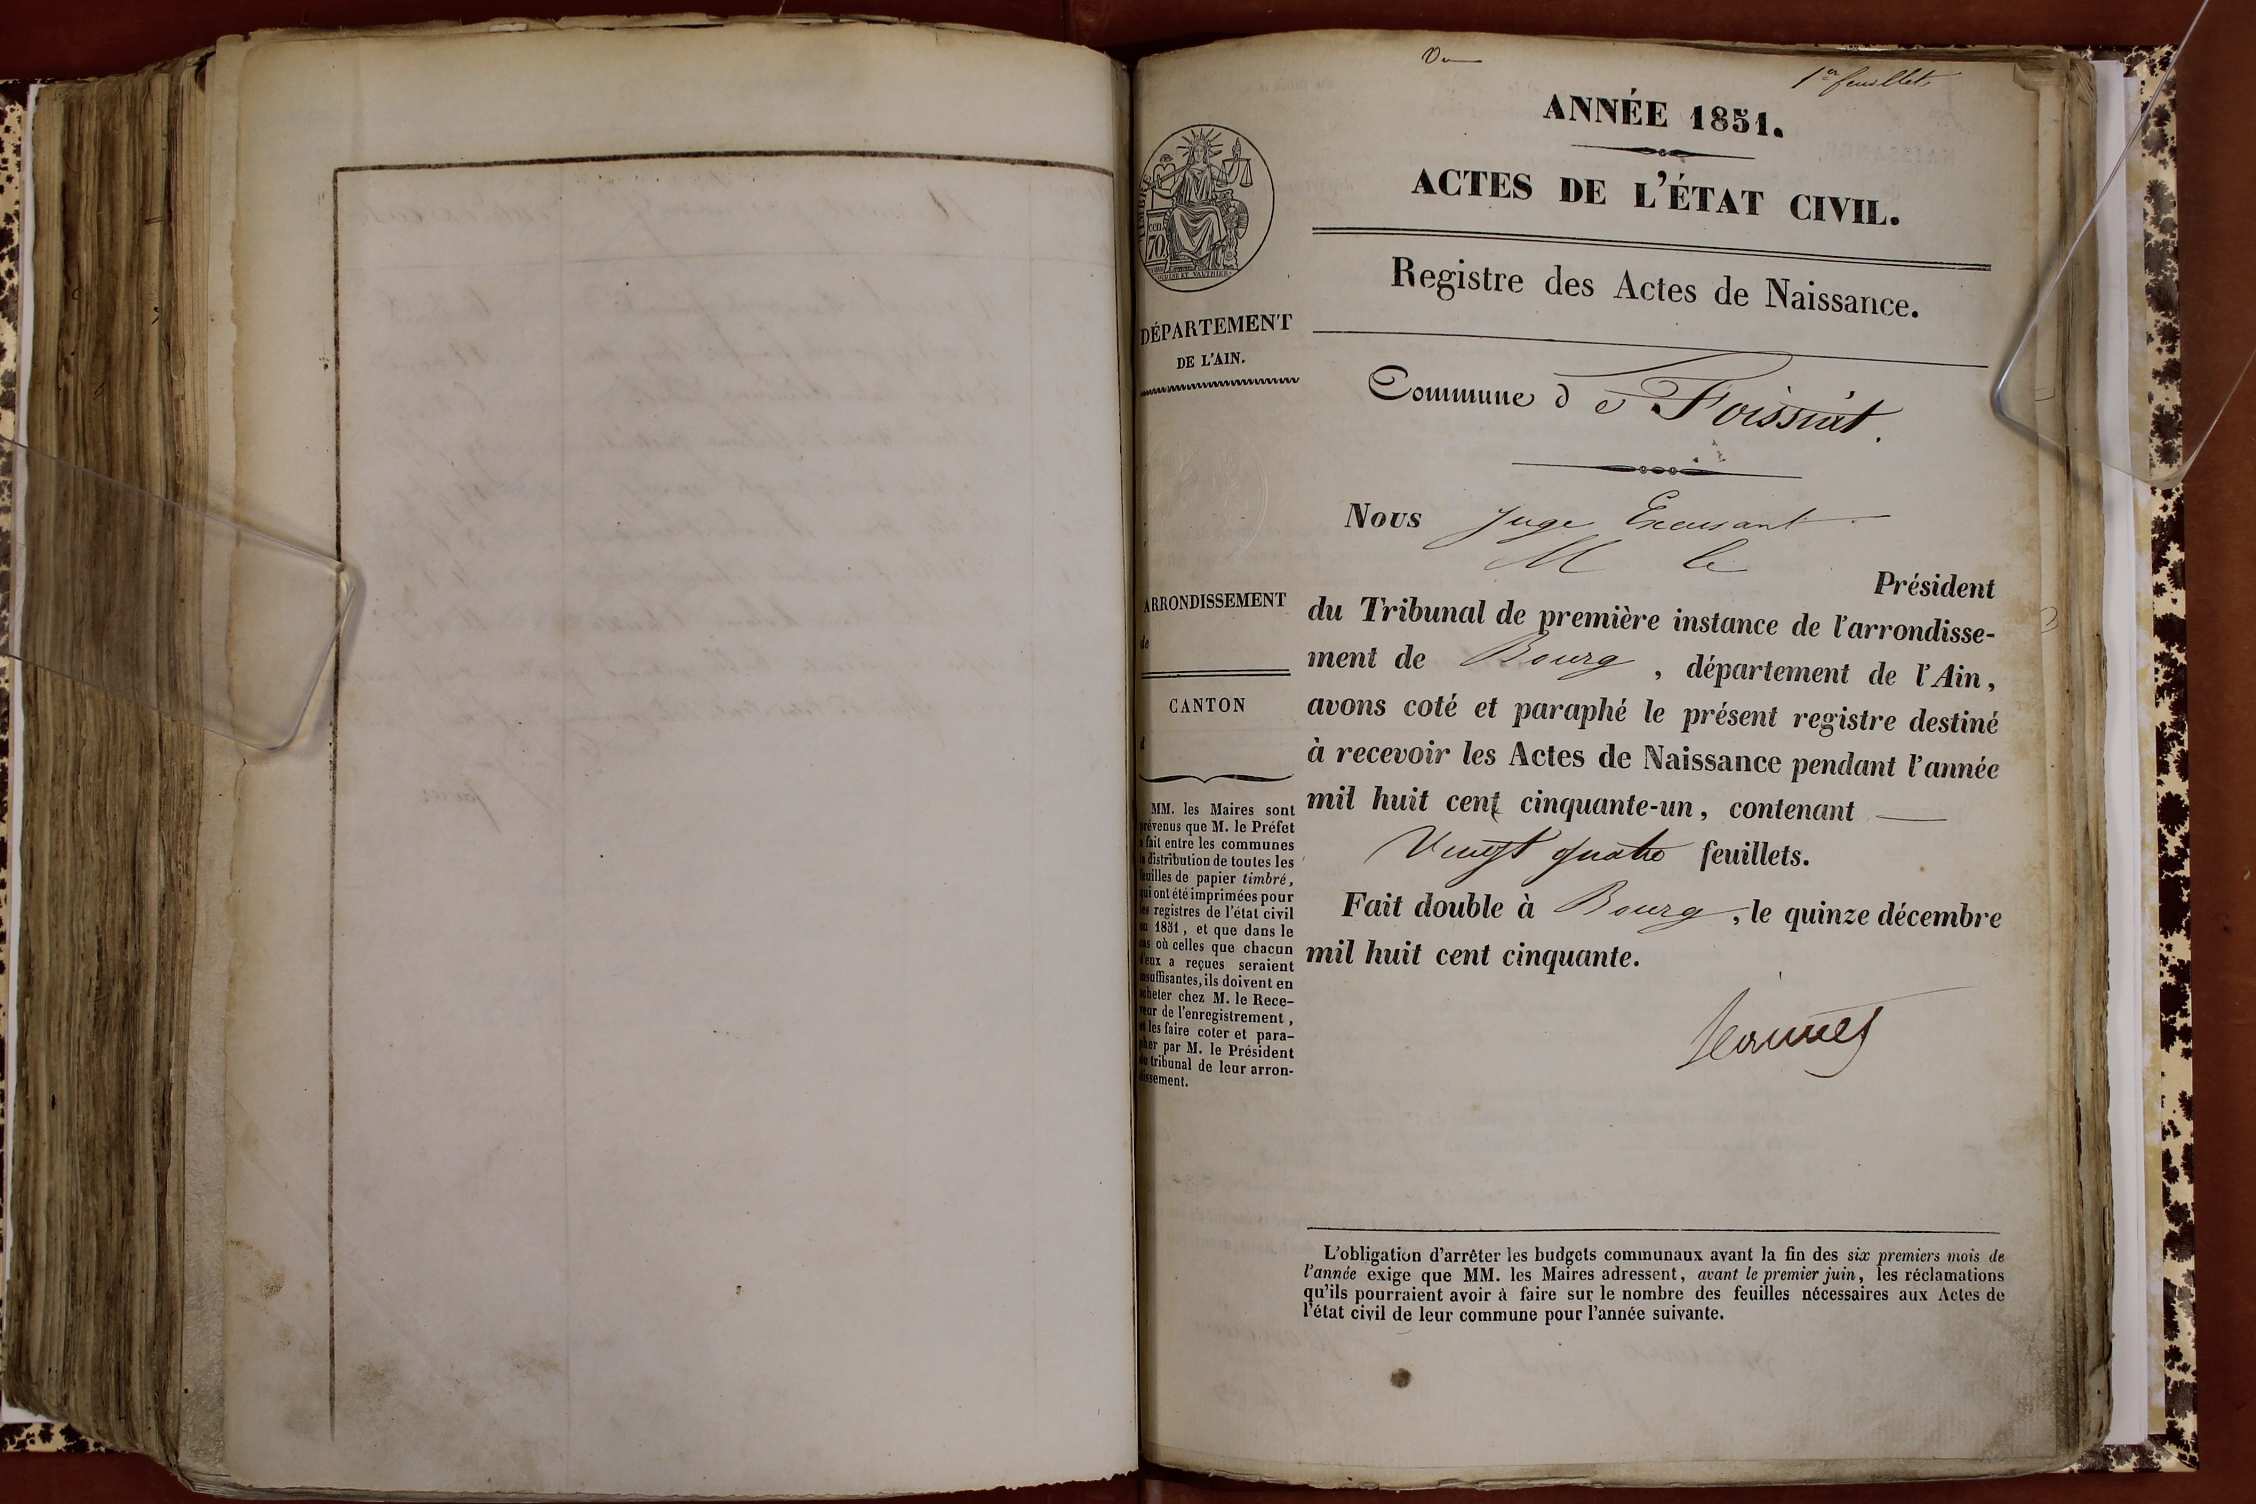 1er feuillet
ANNÉE 1851.
ACTES DE L'ÉTAT CIVIL.
Registre des Actes de Naissance.
cen
70
DÉPARTEMENT
DE L'AIN.
Commune de Foissiat.
Nous Juge Excusant
M le
Président
du Tribunal de première instance de l'arrondisse-
ment de Bourg, département de l'Ain,
avons coté et paraphé le présent registre destiné
à recevoir les Actes de Naissance pendant l'année
mil huit cent cinquante-un, contenant
Vingt quatre feuillets.
Fait double à Bourg, le quinze décembre
mil huit cent cinquante.
ARRONDISSEMENT
de
CANTON
d
MM. les Maires sont
prévenus que M. le Préfet
a fait entre les communes
la distribution de toutes les
feuilles de papier timbré,
qui ont été imprimées pour
les registres de l'état civil
en 1851, et que dans le
cas où celles que chacun
d'eux a reçues seraient
insuffisantes, ils doivent en
acheter chez M. le Rece-
veur de l'enregistrement,
et les faire coter et para-
pher par M. le Président
du tribunal de leur arron-
dissement.
L'obligation d'arrêter les budgets communaux avant la fin des six premiers mois de
l'année exige que MM. les Maires adressent, avant le premier juin, les réclamations
qu'ils pourraient avoir à faire sur le nombre des feuilles nécessaires aux Actes de
l'état civil de leur commune pour l'année suivante.